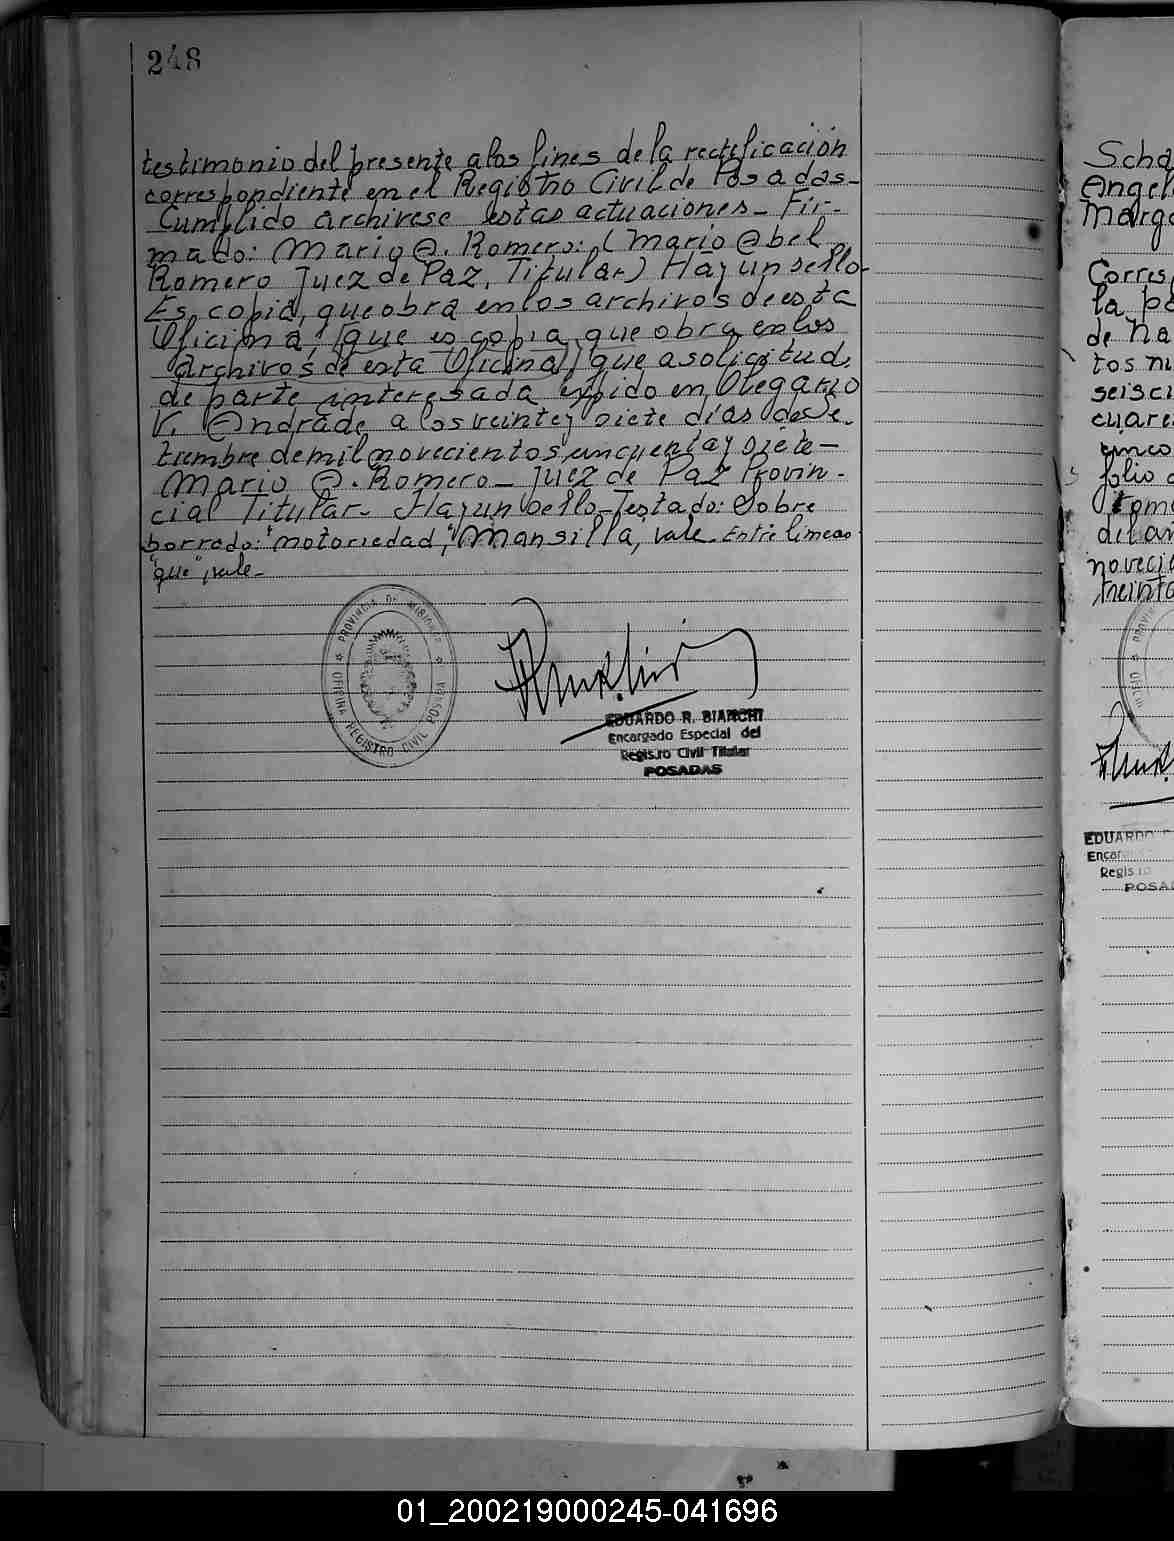 248
testimonio del presente a los fines de la rectificación
correspondiente en el Registro Civil de Posadas_
Cumplido archivese estas actuaciones_ Fir-
mado: Mario A. Romero: (Mario Abel
Romero Juez de Paz, Titular) Hay un sello_
Es copia, que obra en los archivos de esta
Oficina, (que es copia que obra en los
archivos de esta Oficina) que a solicitud
de parte interesada expido en Olegario
V. Andrade a los veinte y siete días de Se-
tiembre de mil novecientos cincuenta y siete_
Mario A. Romero_ Juez de Paz Provin-
cial Titular_ Hay un sello_ Testado: Sobre
borrado: "notoriedad", "Mansilla, vale. Entre lineas
"que", vale_
PROVINCIA DE MISIONES
OFICINA REGISTRO CIVIL POSADAS
EDUARDO R. BIANCHI
Encargado Especial del
Registro Civil Titular
POSADAS
Scha
Angel
Marga
Corres
la pa
de Na
tos m
seisci
cuare
cinco
folio
tomo
del an
noveci
treinta
EDUARDO
Encar
Regis
POSA
01_200219000245-041696